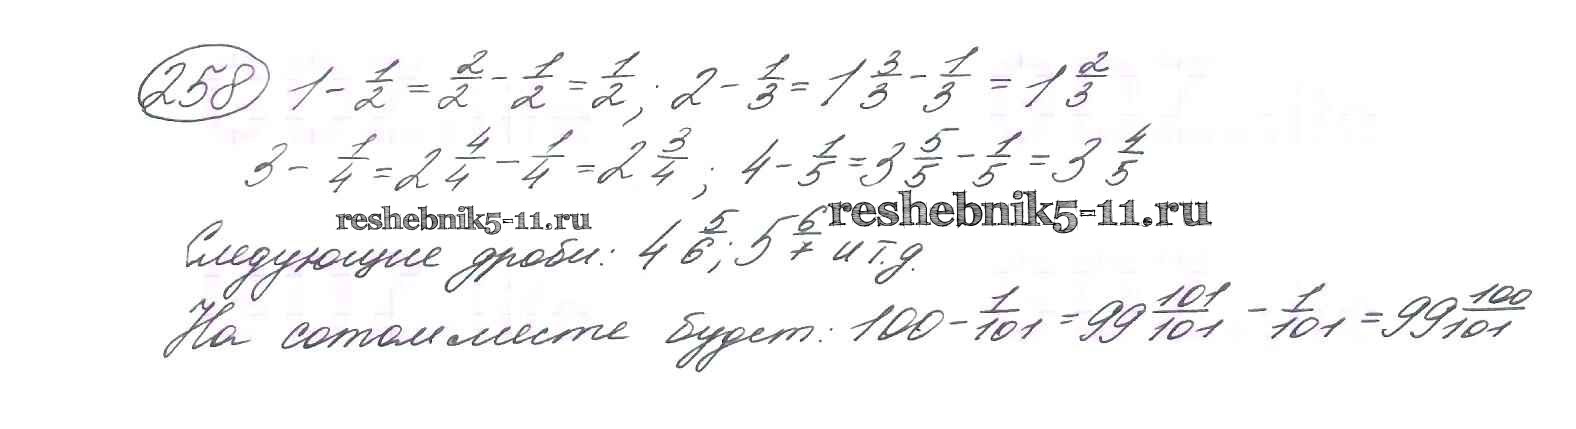 258 1 - 1/2 = 2/2 - 1/2 = 1/2; 2 - 1/3 = 1 3/3 - 1/3 = 1 2/3
3 - 1/4 = 2 4/4 - 1/4 = 2 3/4; 4 - 1/5 = 3 5/5 - 1/5 = 3 4/5
reshebnik5-11.ru reshebnik5-11.ru
Следующие дроби: 4 5/6; 5 6/7 и т.д.
На сотом месте будет: 100 - 1/101 = 99 101/101 - 1/101 = 99 100/101